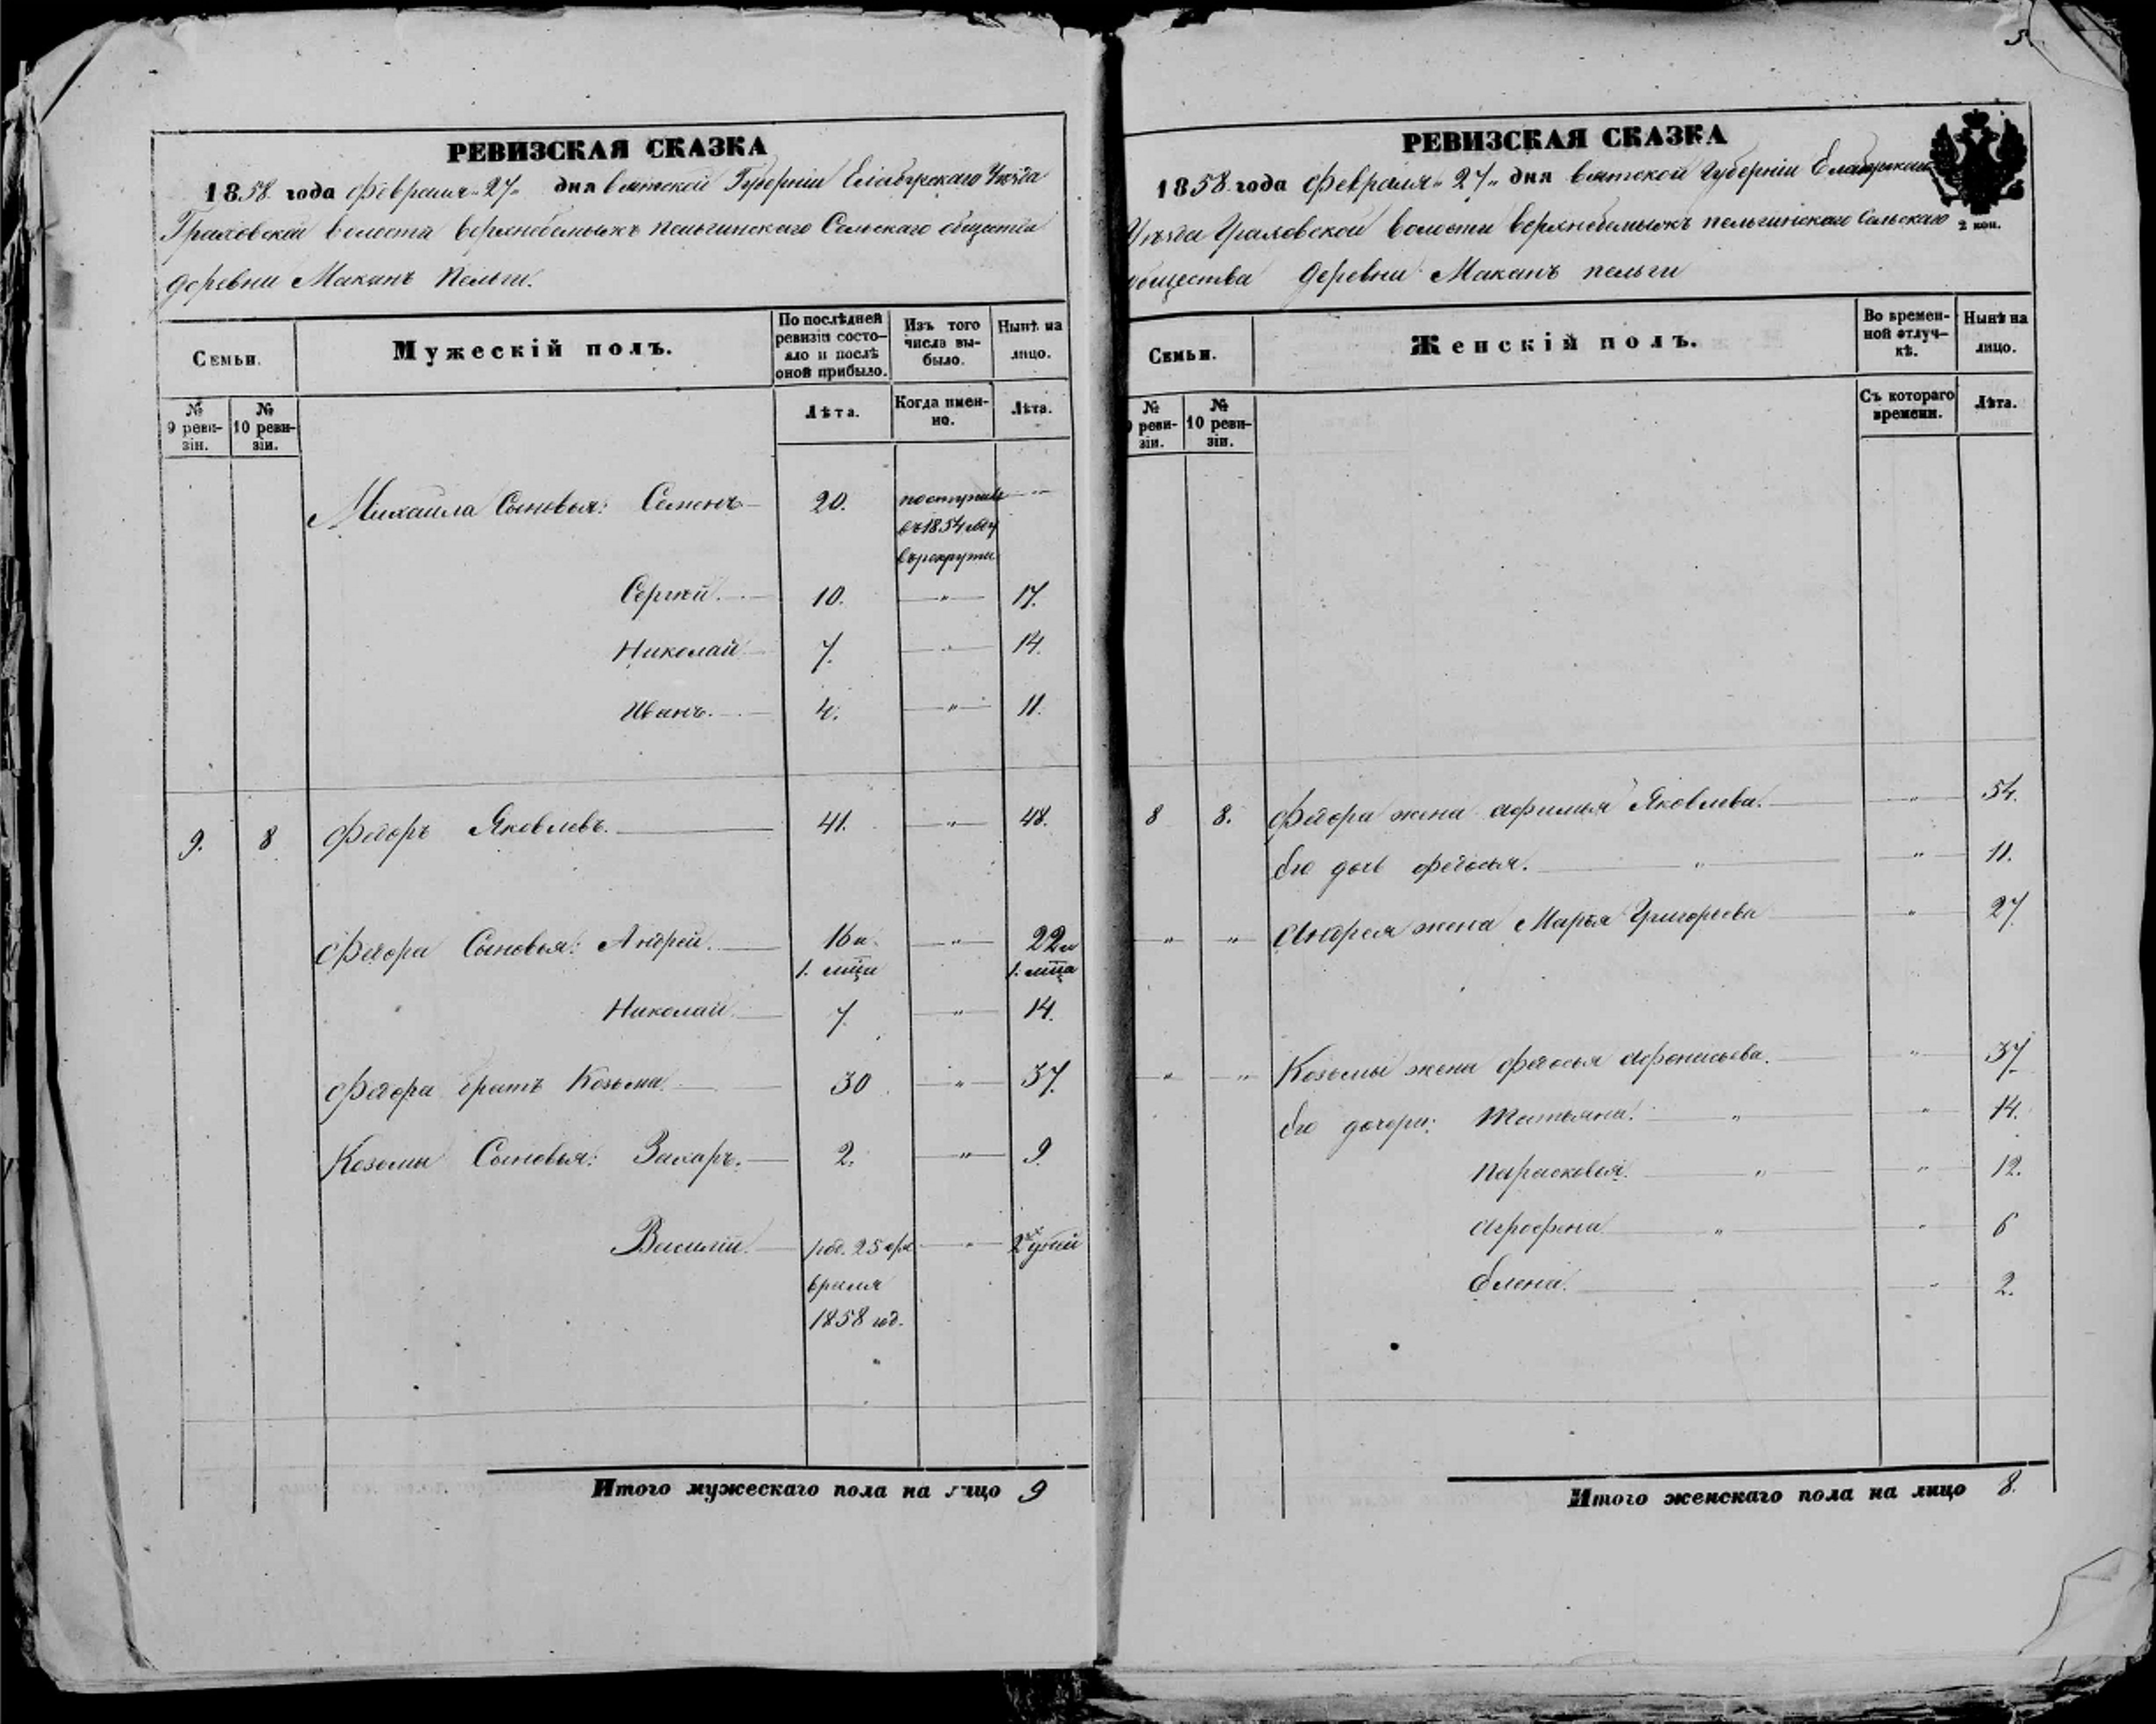 5
РЕВИЗСКАЯ СКАЗКА
1858 года Февраля „27„ дня Вятской Губерніи Елабужскаго Уѣзда
Граховской волости Верхнебемыжъ пельгинскаго Сельскаго общества
деревни Маканъ Пельги.
Семьи.
Мужескій полъ.
По послѣдней ревизіи состояло и послѣ оной прибыло.
Изъ того числа выбыло.
Нынѣ на лицо.
№ 9 ревизіи.
№ 10 ревизіи.
Лѣта.
Когда именно.
Лѣта.
Михаила Сыновья: Семенъ 20. поступилъ въ 1854 году в рекруты „
Сергѣй. 10. „ 17.
Николай 7. „ 14.
Иванъ. 4. „ 11.
9. 8 Федоръ Яковлевъ. 41. „ 48.
Федора Сыновья: Андрей. 16 и „ 22 и
Николай 7 „ 14.
Федора братъ Козьма 30 „ 37.
Козьмы Сыновья: Захаръ. 2. „ 9.
Василій. род. 25 фе „ 2х дней
враля
1858 год.
„
Итого мужескаго пола на лицо 9
РЕВИЗСКАЯ СКАЗКА
1858 года Февраля „27„ дня Вятской Губерніи Елабужскаго
Уѣзда Граховской волости Верхнебемыжъ пельгинскаго Сельскаго
общества деревни Маканъ пельги
2 коп.
Семьи.
Женскій полъ.
Во временной отлучкѣ.
Нынѣ на лицо.
9 ревизіи.
№ 10 ревизіи.
Съ котораго времени.
Лѣта.
8 8. Федора жена Афимья Яковлева. „ 54.
Его дочь Федосья. „ „ 11.
„ „ Андрея жена Марья Григорьева „ 27
„ „ Козьмы жена Федосья Афонасьева. „ 37
Его дочери: Татьяна. „ „ 14.
Парасковья. „ „ 12.
Агрофена „ „ 6
Елена. „ 2.
Итого женскаго пола на лицо 8.